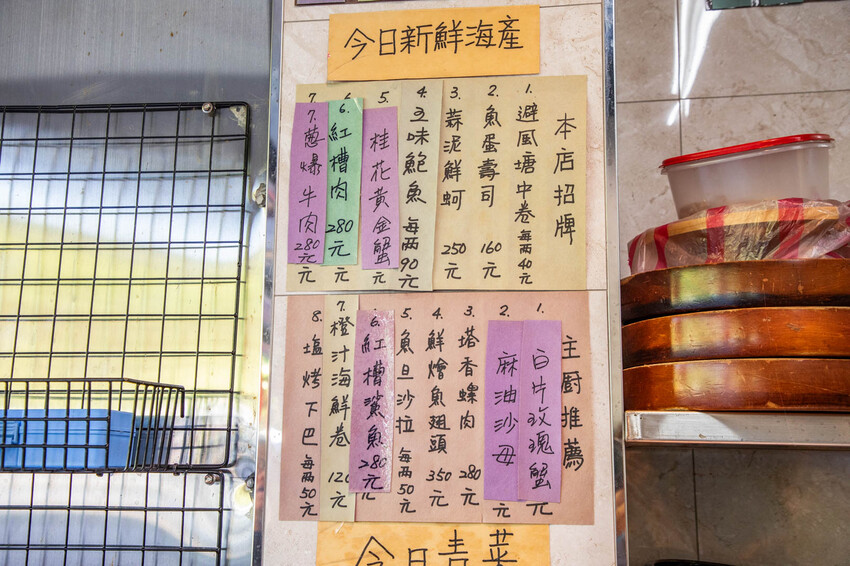 今日新鮮海產
本店招牌
1. 避風塘中卷 每兩40元
2. 魚蛋壽司 160元
3. 蒜泥鮮蚵 250元
4. 五味鮑魚 每兩90元
5. 桂花黃金蟹 元
6. 紅槽肉 280元
7. 蔥爆牛肉 280元
主廚推薦
1. 白片玫瑰蟹 元
2. 麻油沙母
3. 塔香螺肉 280元
4. 鮮燴魚翅頭 350元
5. 魚旦沙拉 每兩50元
6. 紅槽鯊魚 280元
7. 橙汁海鮮卷 120元
8. 塩烤下巴 每兩50元
今日青菜